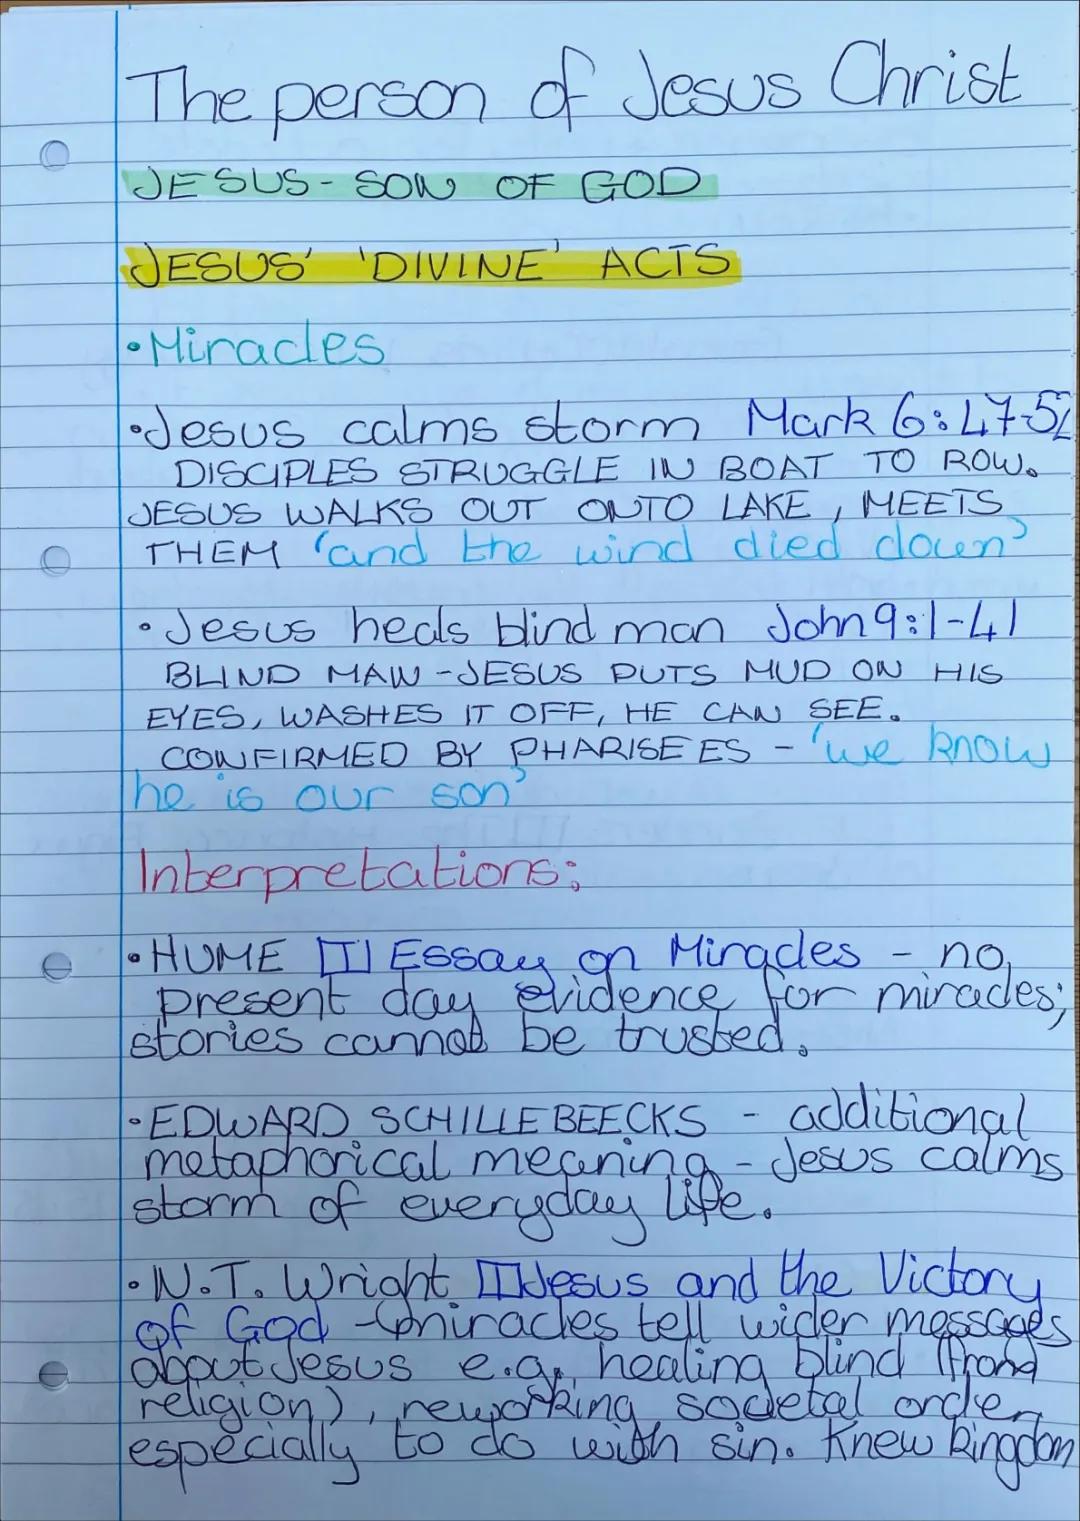 The person of Jesus Christ
JESUS - SON OF GOD
JESUS' 'DIVINE' ACTS
•Miracles
•Jesus calms storm Mark 6:47-52
DISCIPLES STRUGGLE IN BOAT TO ROW.
JESUS WALKS OUT ONTO LAKE, MEETS
THEM 'and the wind died down'
•Jesus heals blind man John 9:1-41
BLIND MAN - JESUS PUTS MUD ON HIS
EYES, WASHES IT OFF, HE CAN SEE.
CONFIRMED BY PHARISEES - 'we know
he is our son'
Interpretations:
•HUME Essay on Miracles - no
present day evidence for miracles;
stories cannot be trusted.
•EDWARD SCHILLEBEECKS - additional
metaphorical meaning - Jesus calms
storm of everyday life.
•N.T. Wright Jesus and the Victory
of God - miracles tell wider messages
about Jesus e.g. healing blind
religion), reworking societal order,
especially to do with sin. new kingdom